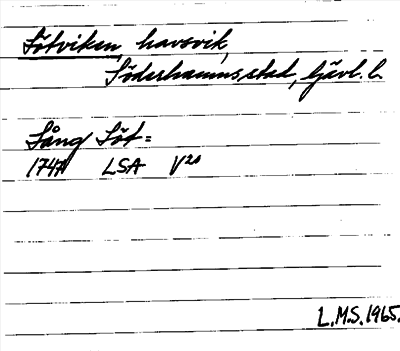 Sötviken, havsvik,
Söderhamns stad, Gävl. l.
Lång Söt=
1747 LSA V20
L.M.S. 1965.